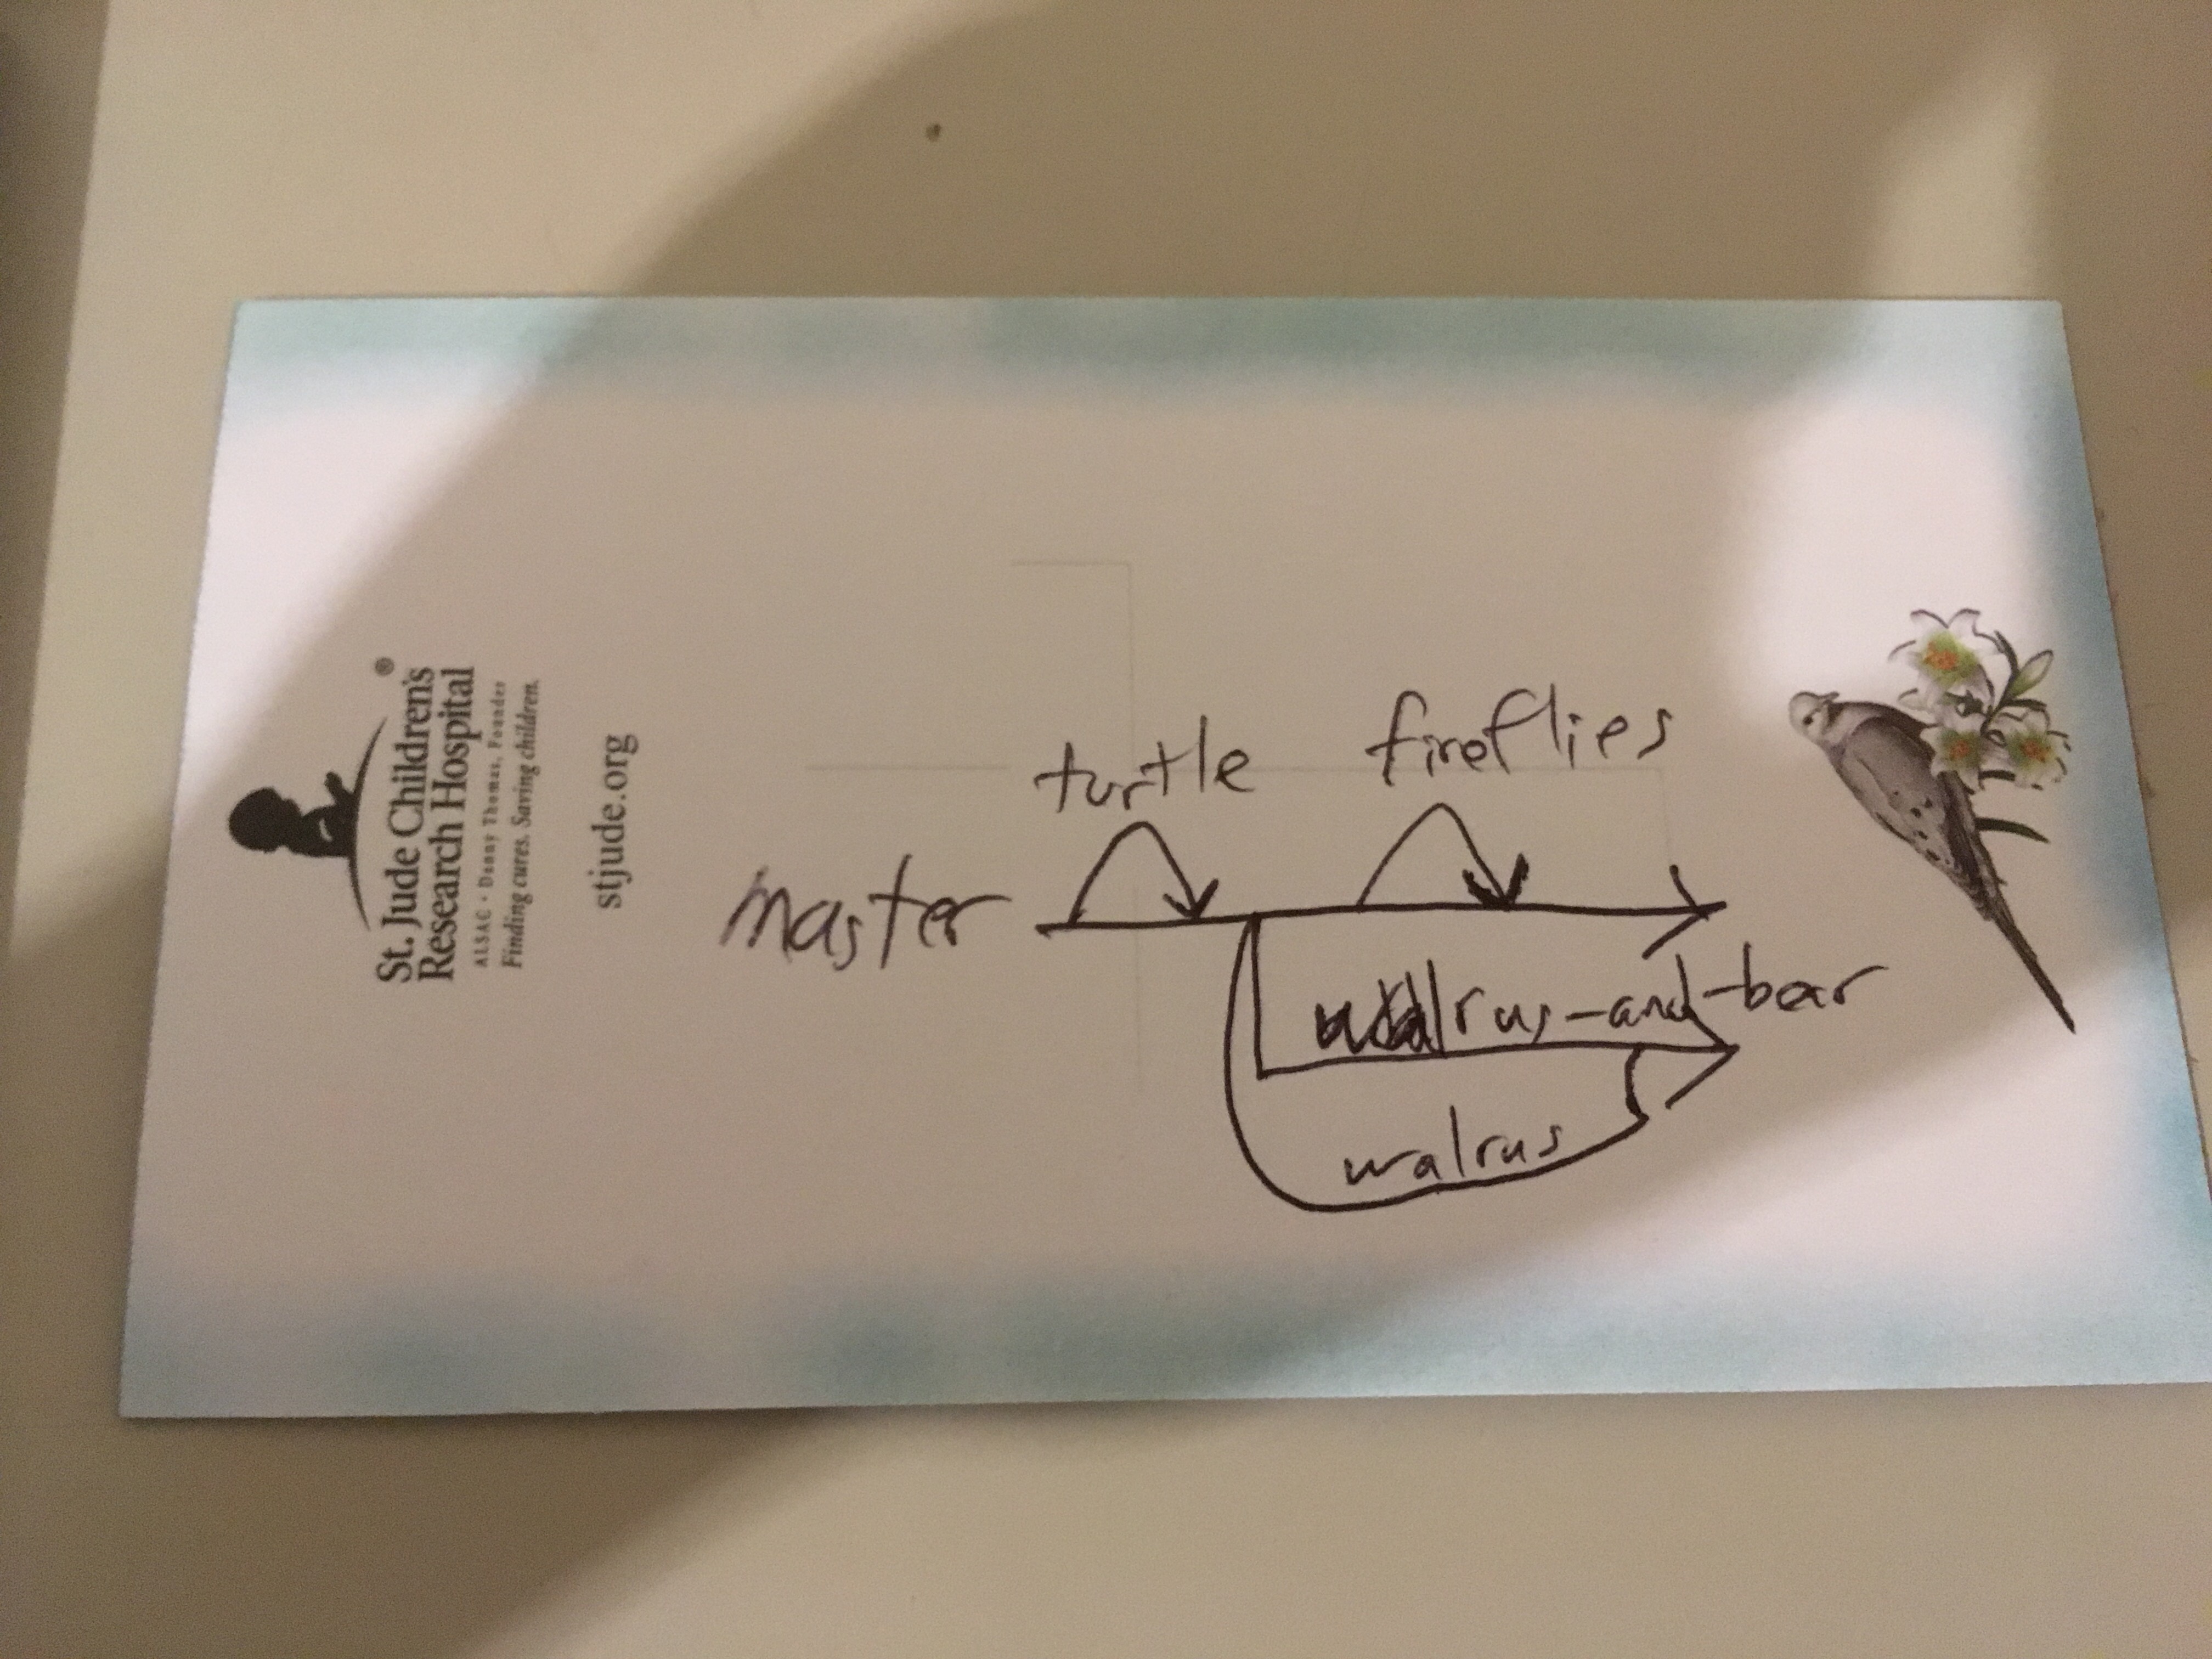 St. Jude Children's®
Research Hospital
ALSAC • Danny Thomas, Founder
Finding cures. Saving children.
stjude.org
master
turtle
fireflies
walrus-and-bar
walrus